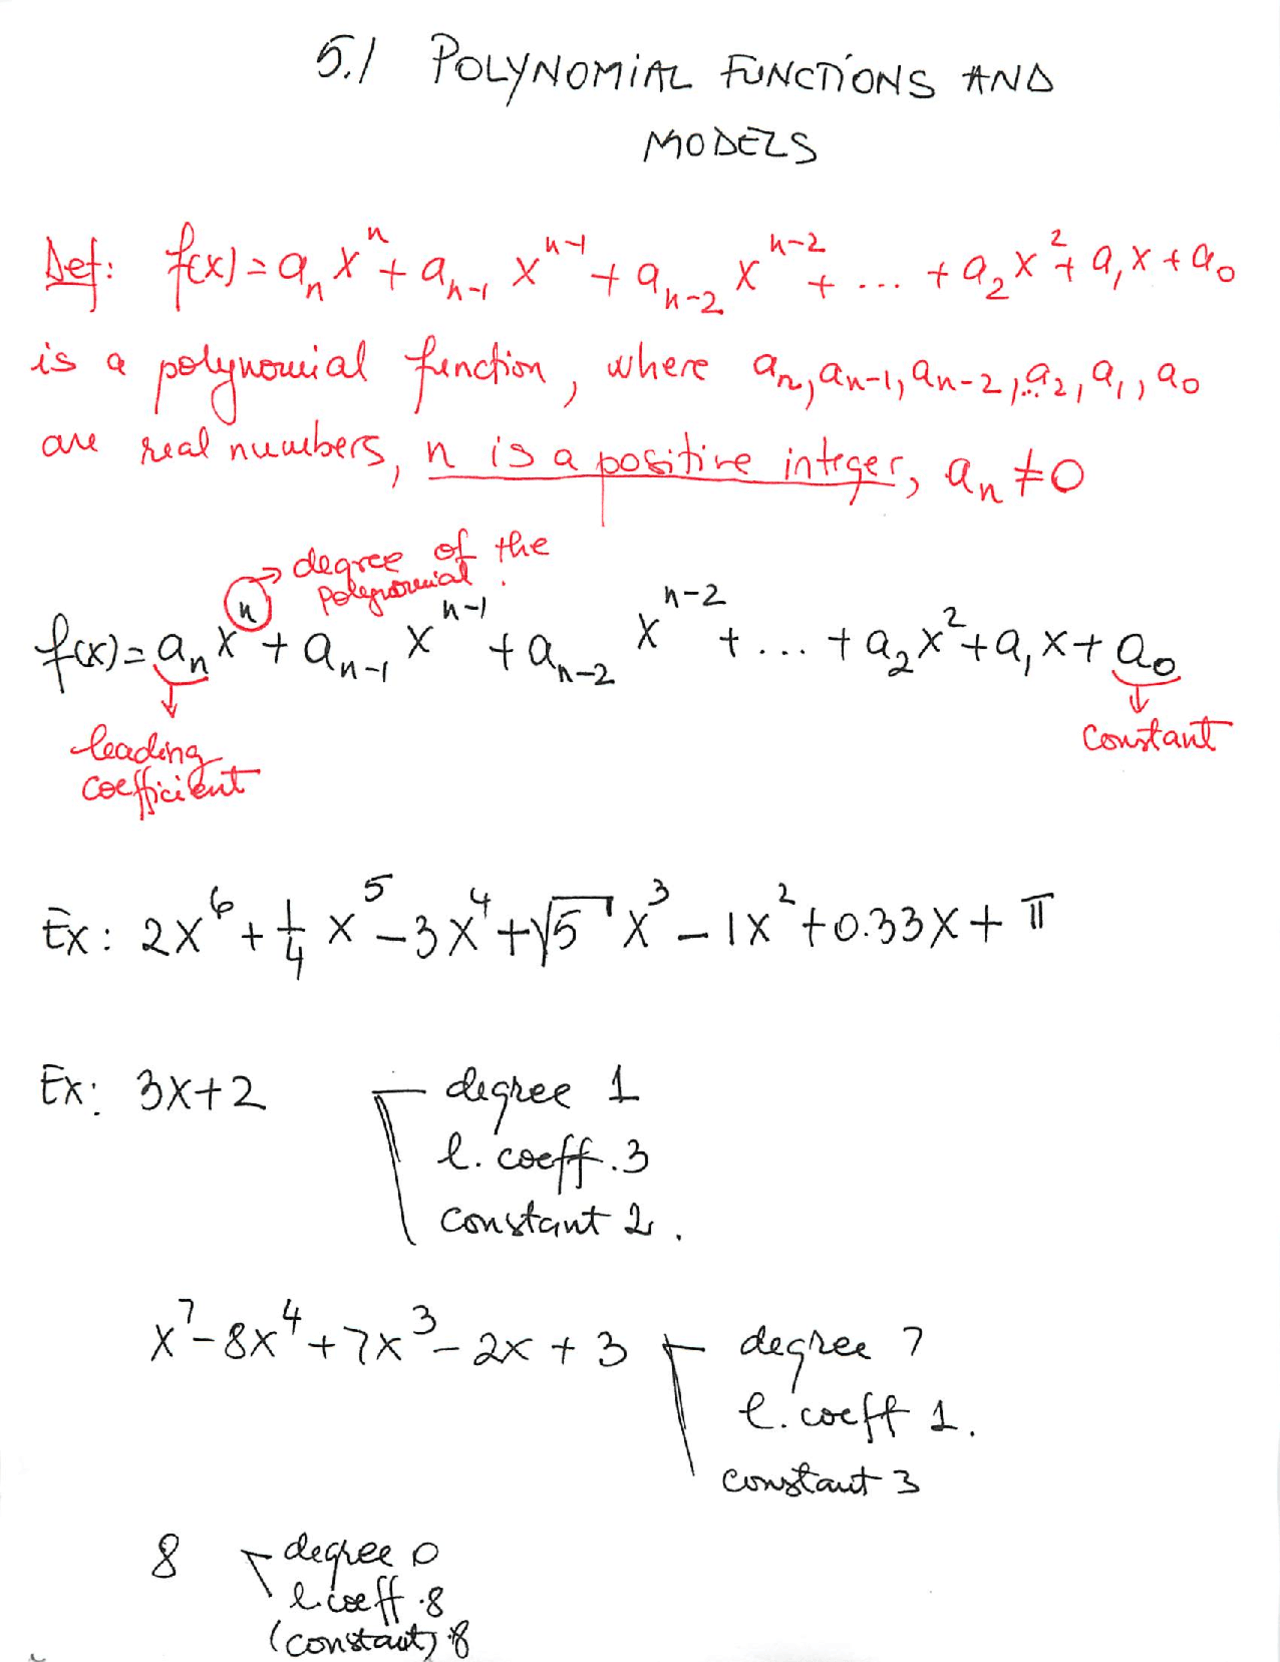 5.1 POLYNOMIAL FUNCTIONS AND
MODELS
Def: f(x) = aₙxⁿ + aₙ₋₁xⁿ⁻¹ + aₙ₋₂xⁿ⁻² + ... + a₂x² + a₁x + a₀
is a polynomial function, where aₙ, aₙ₋₁, aₙ₋₂, ... a₂, a₁, a₀
are real numbers, n is a positive integer, aₙ ≠ 0
→ degree of the
polynomial.
f(x) = aₙxⁿ + aₙ₋₁xⁿ⁻¹ + aₙ₋₂xⁿ⁻² + ... + a₂x² + a₁x + a₀
leading
coefficient
constant
Ex: 2x⁶ + 1/4 x⁵ - 3x⁴ + √5 x³ - 1x² + 0.33x + π
Ex: 3x+2 degree 1
l. coeff. 3
constant 2.
x⁷ - 8x⁴ + 7x³ - 2x + 3 degree 7
l. coeff 1.
constant 3
8 degree 0
l. coeff. 8
(constant) 8